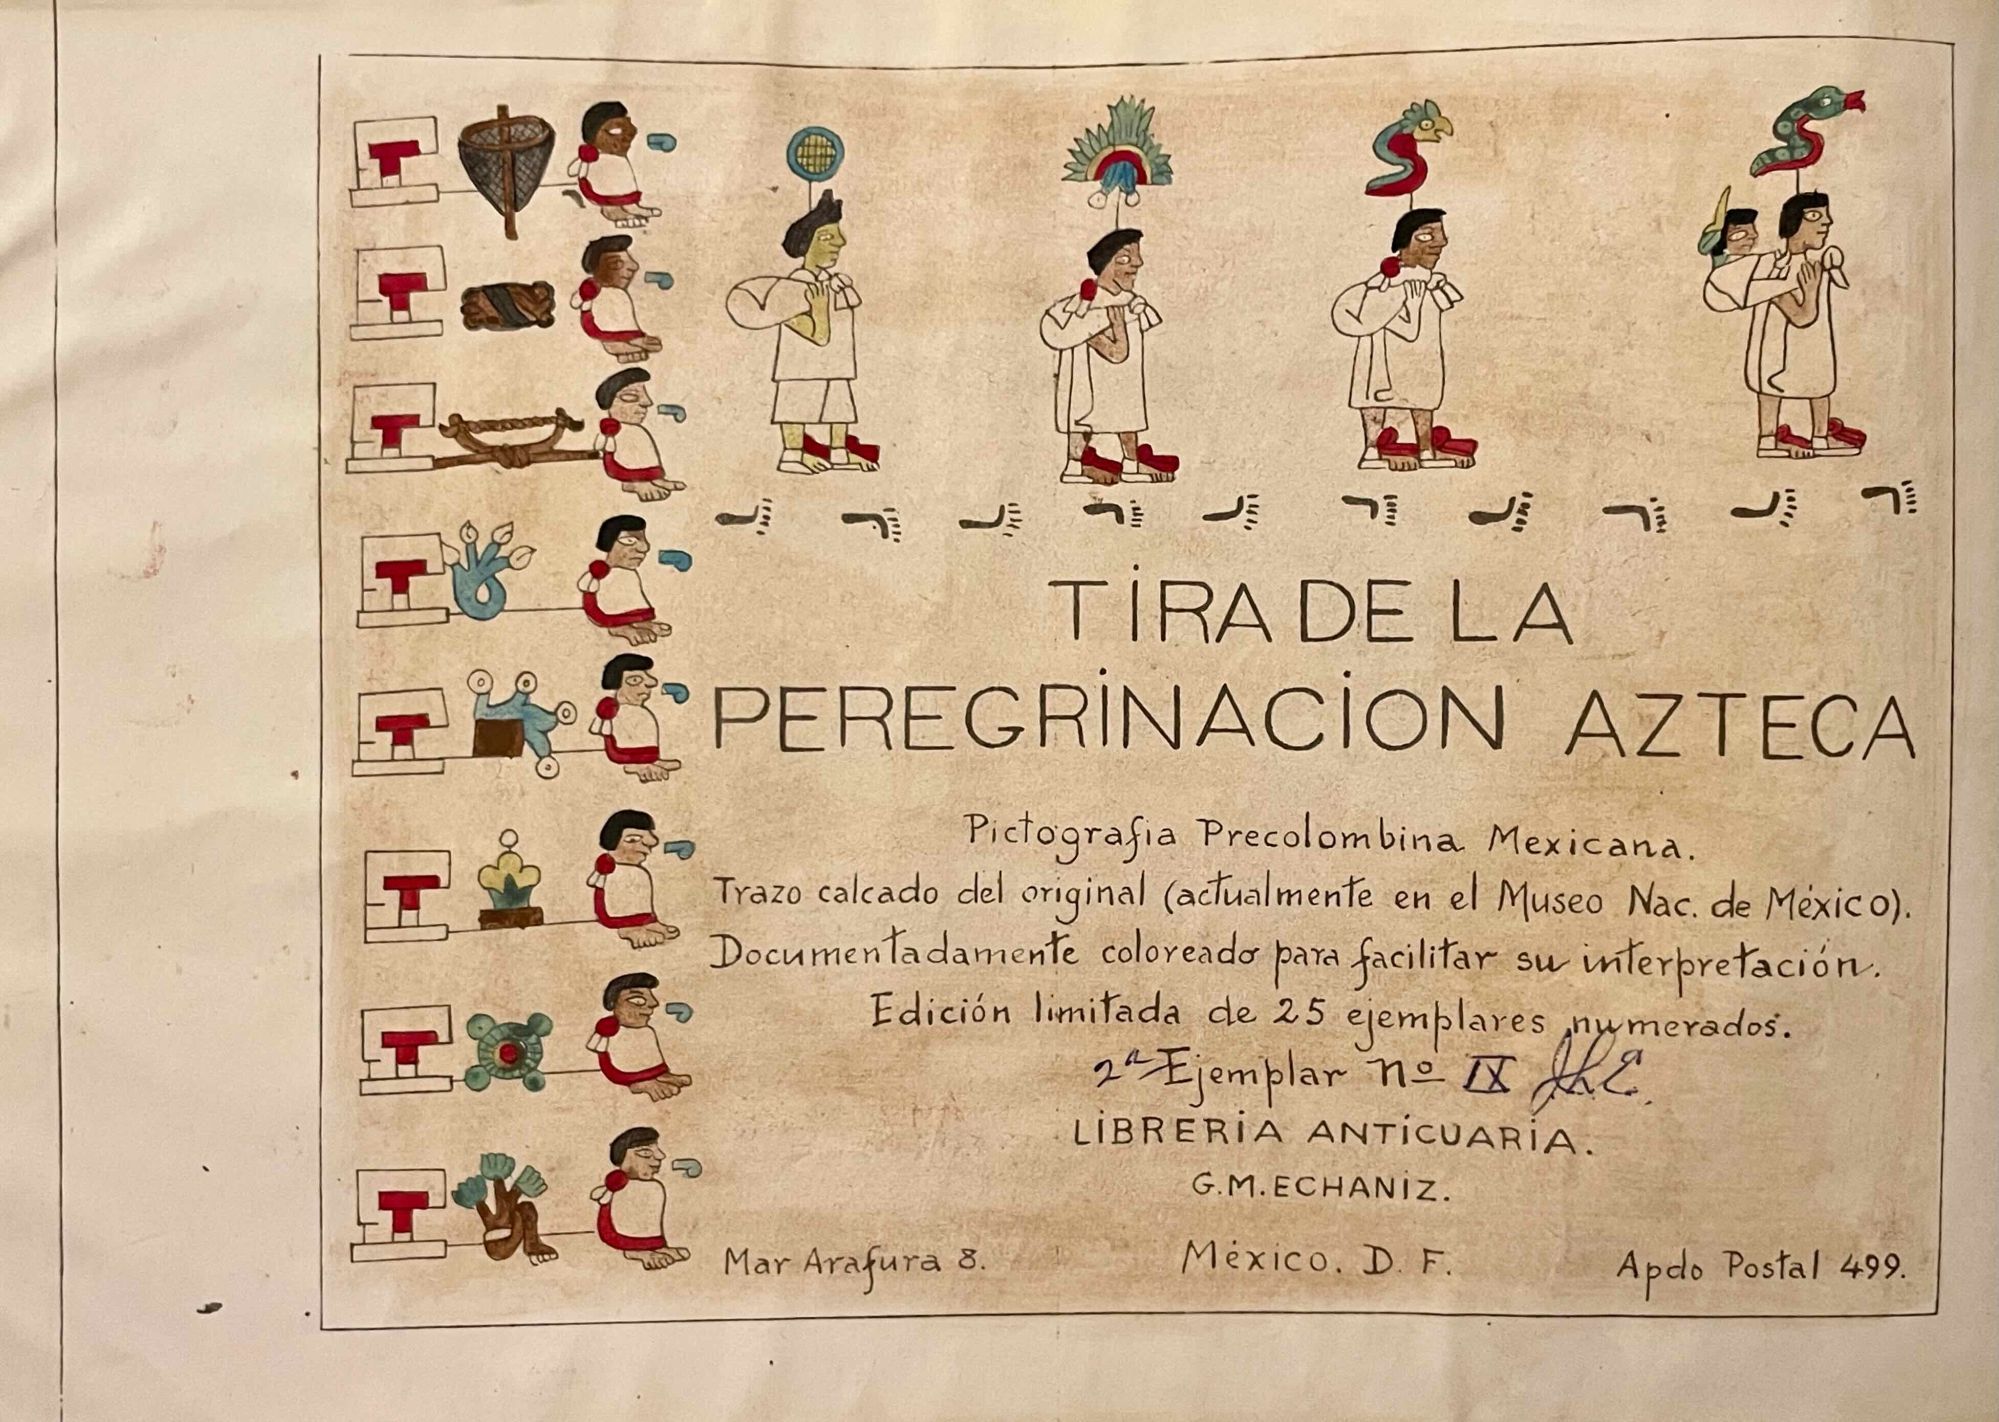 TIRA DE LA
PEREGRINACION AZTECA
Pictografia Precolombina Mexicana.
Trazo calcado del original (actualmente en el Museo Nac. de México).
Documentadamente coloreado para facilitar su interpretación.
Edición limitada de 25 ejemplares numerados.
2ª Ejemplar nº IX
LIBRERIA ANTICUARIA.
G.M. ECHANIZ.
Mar Arafura 8. México. D. F. Apdo Postal 499.